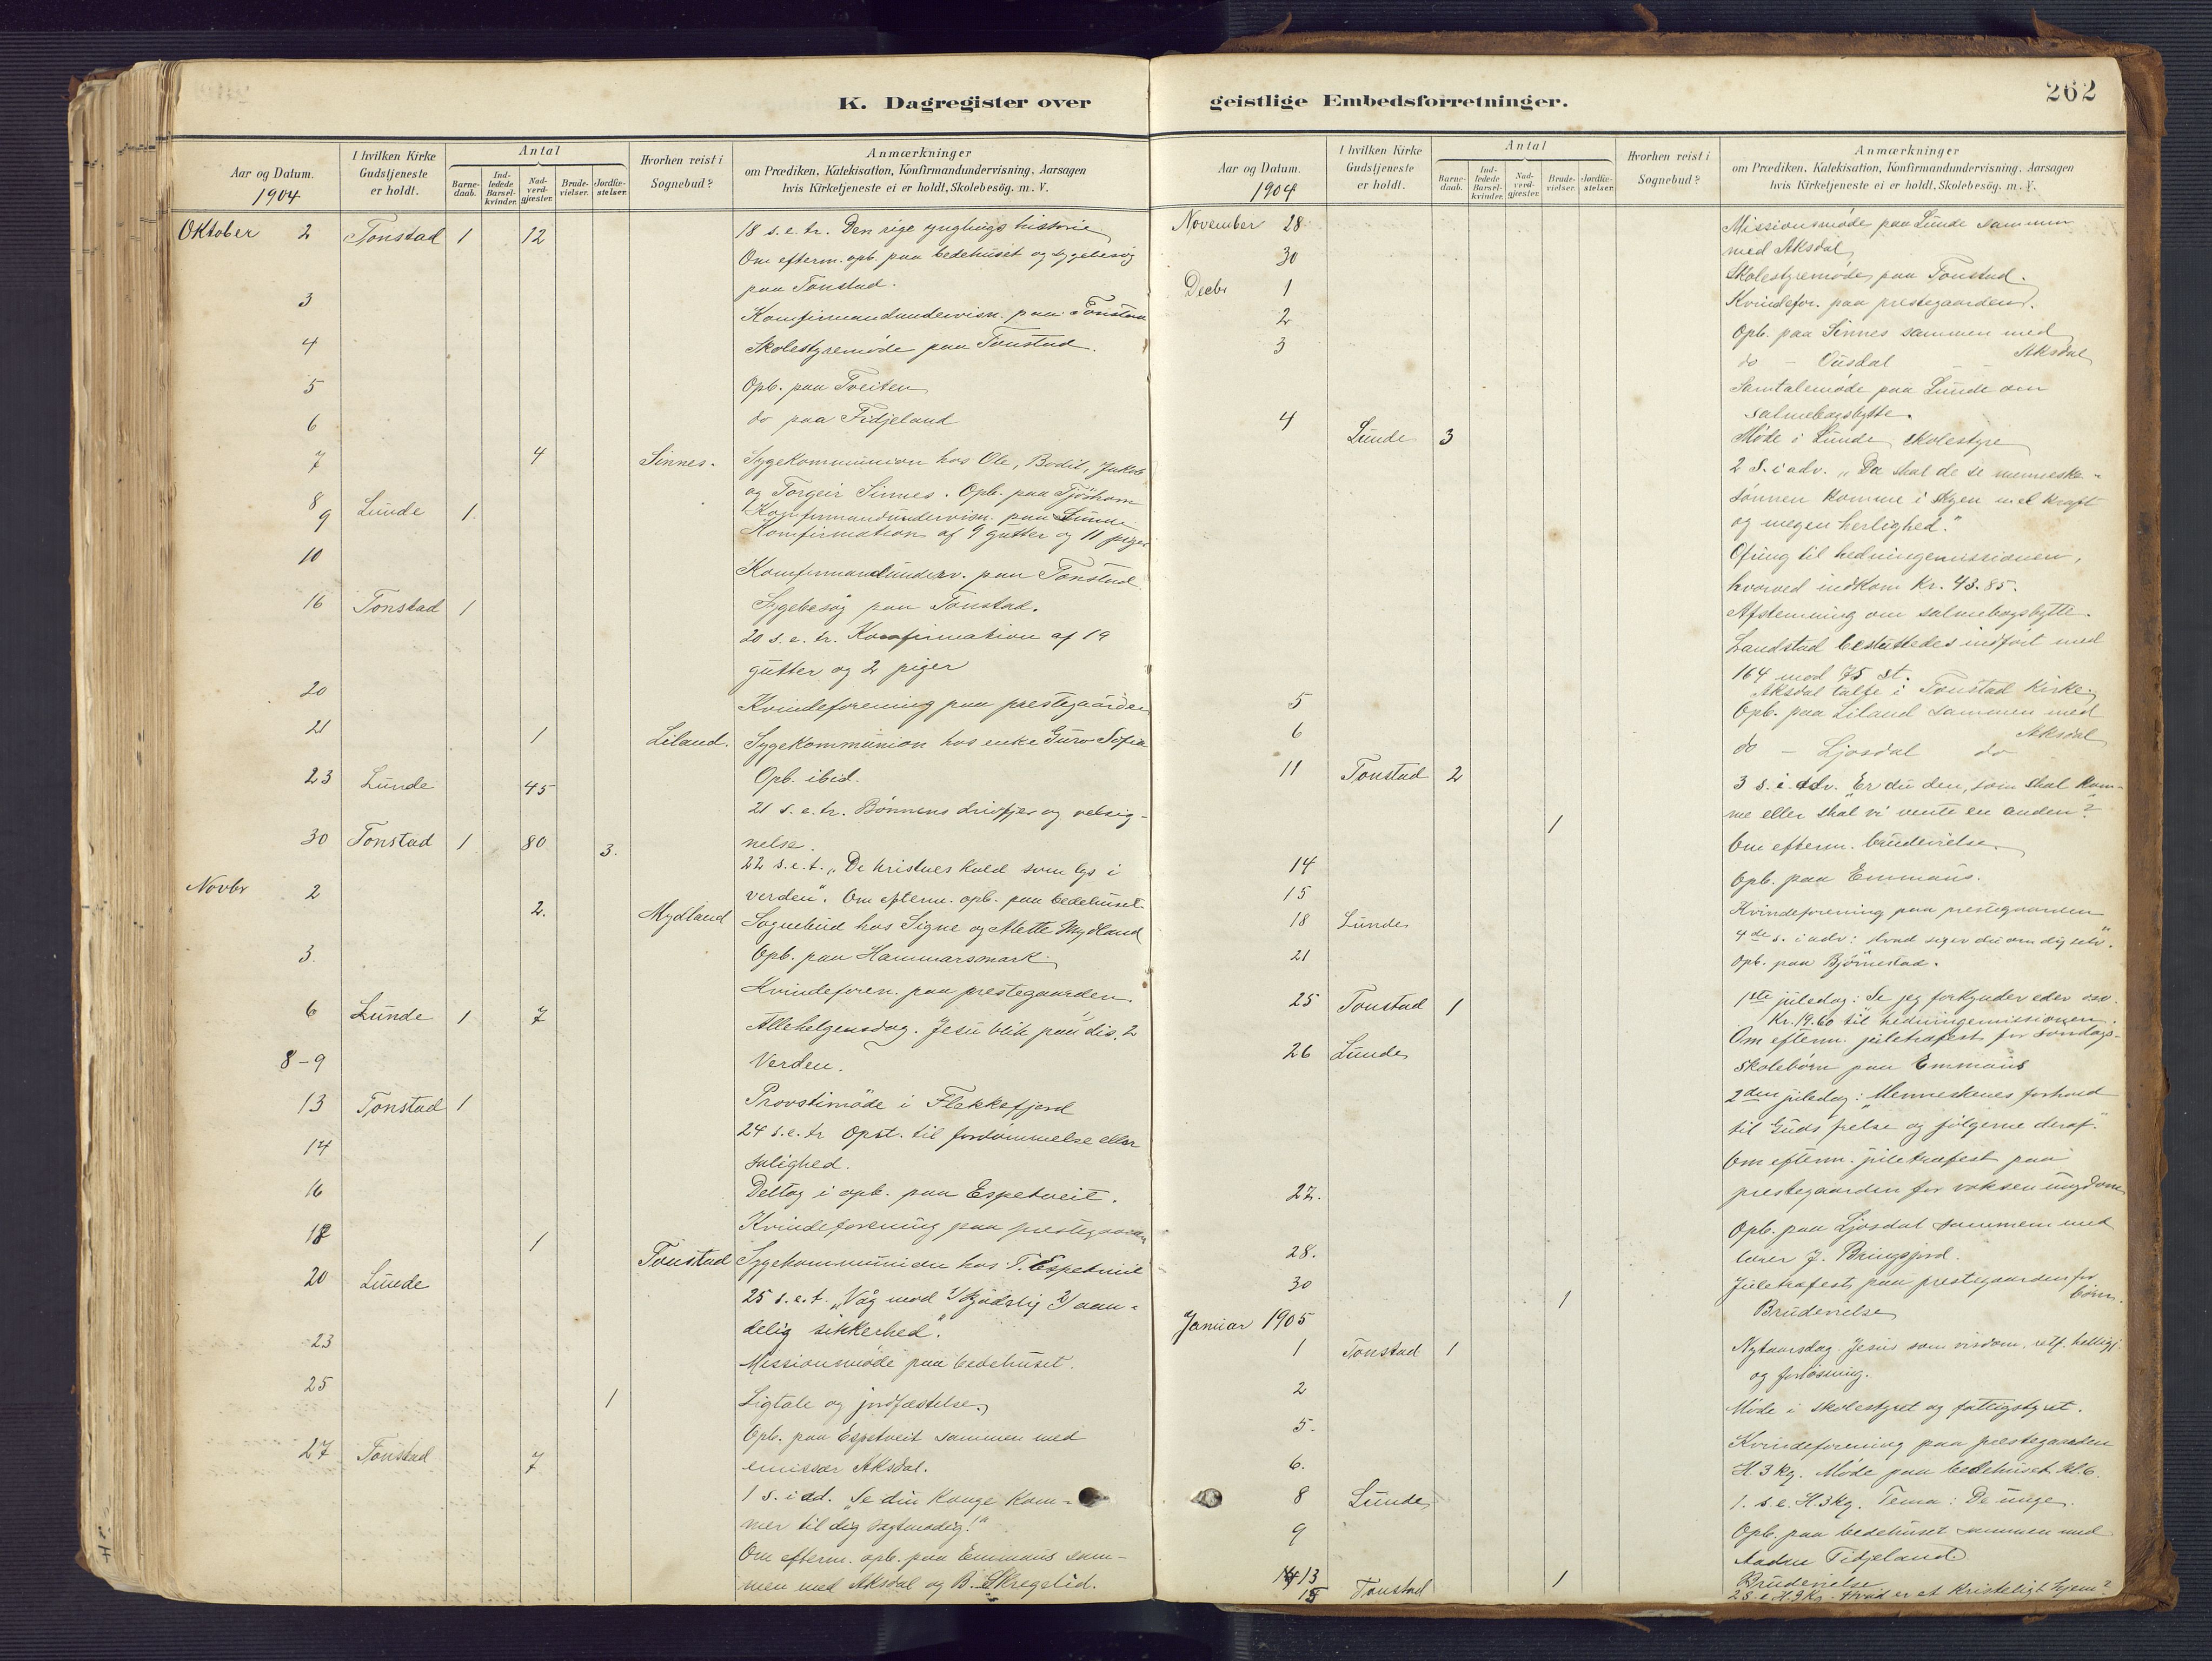 262
K. Dagregister over
geistlige Embedsforretninger.
Aar og Datum.
1904
I hvilken Kirke Gudstjeneste er holdt.
Antal
Barne-daab.
Ind-ledede Barsel-kvinder.
Nad-verd-gjæster.
Brude-vielser.
Jordfæ-stelser.
Hvorhen reist i Sognebud?
Anmærkninger
om Prædiken, Katekisation, Konfirmandundervisning, Aarsagen
hvis Kirketjeneste ei er holdt, Skolebesög. m. V.
Oktober 2 Tonstad 1 12 18 s. e. tr. Den rige ynglings historie
Om efterm. opb. paa bedehuset og sygebesög
paa Tonstad.
3 Konfirmandundervisn. paa Tonstad
4 Skolestyremöde paa Tonstad.
5 Opb. paa Tveiten
6 do paa Fidjeland
7 4 Sinnes. Sygekommunion hos Ole, Bodil, Jakob
og Torgeir Sinnes. Opb. paa Tjörhom
8 Konfirmandundervisn. paa Lunde
9 Lunde 1 Konfirmation af 9 gutter og 11 piger
10 Konfirmandunderv. paa Tonstad.
Sygebesög paa Tonstad.
16 Tonstad 1 20 s. e. tr. Konfirmation af 19
gutter og 2 piger
20 Kvindeforening paa prestegaarden
21 1 Liland. Sygekommunion hos enke Guro Sofie
Opb. ibid.
23 Lunde 45 21 s. e. tr. Bönnens drivfjer og velsig-
nelse.
30 Tonstad 1 80 3. 22 s. e. t. „De kristnes kald som lys i
verden". Om efterm. opb. paa bedehuset
Novbr 2 2. Mydland Sognebud hos Signe og Mette Mydland
Opb. paa Hammarsmark
3. Kvindeforen. paa prestegaarden.
6 Lunde 1 7 Allehelgensdag. Jesu blik paa dis. 2
Verden.
8-9 Provstimöde i Flekkefjord
13 Tonstad 1 24 s. e. tr Opst. til fordömmelse eller
salighed.
14 Deltog i opb. paa Espetveit.
16 Kvindeforening paa prestegaarden
18 1 Tonstad Sygekommunion hos T. Espetveit
20 Lunde 25 s. e. t. „Våg mod 1) kjödelig 2) aan-
delig sikkerhed".
23 Missionsmöde paa bedehuset.
25 1 Ligtale og jordfæstelse
Opb. paa Espetveit sammen med
emissær Aksdal.
27 Tonstad 7 1 s. i ad. „Se din Konge Kom-
mer til dig sagtmodig!"
Om efterm. opb. paa Emmaus sam-
men med Aksdal og B. Skregelid.
Aar og Datum.
1904
I hvilken Kirke Gudstjeneste er holdt.
Antal
Barne-daab.
Ind-ledede Barsel-kvinder.
Nad-verd-gjæster.
Brude-vielser.
Jordfæ-stelser.
Hvorhen reist i Sognebud?
Anmærkninger
om Prædiken, Katekisation, Konfirmandundervisning, Aarsagen
hvis Kirketjeneste ei er holdt, Skolebesög. m. V.
November 28 Missionsmöde paa Lunde sammen
med Aksdal
30 Skolestyremöde paa Tonstad.
Decbr 1 Kvindefor. paa prestegaarden.
2 Opb. paa Sinnes sammen med
Aksdal
3 do - Ousdal
Samtalemöde paa Lunde om
salmebogsbytte.
Möde i Lunde skolestyre
4 Lunde 3 2 S. i adv. „Da skal de se menneske-
sönnen komme i skyen med kraft
og megen herlighed."
Ofring til hedningemissionen,
hvorved indkom Kr. 43.85.
Afstemning om salmebogsbytte.
Landstad besluttedes indfört med
164 mod 75 st.
Aksdal talte i Tonstad Kirke
5 Opb. paa Liland sammen med
Aksdal
6 do - Ljosdal do
11 Tonstad 2 3 s. i. adv. „Er du den, som skal kom-
me eller skal vi vente en anden?"
1 Om efterm. brudevielse
14 Opb. paa Emmaus.
15 Kvindeforening paa prestegaarden
18 Lunde 4de s. i adv: Hvad siger du om dig selv".
21 Opb. paa Björnestad.
25 Tonstad 1 1ste juledag: Se jeg forkynder eder osv.
Kr. 19.60 til hedningemissionen.
Om efterm. juletrafest for söndags-
skolebörn paa Emmaus
26 Lunde 2den juledag: „Menneskenes forhold
til Guds frelse og fölgerne deraf."
Om efterm. juletrafest paa
prestegaarden for voksen ungdom
27. Opb. paa Ljosdal sammen med
lærer J. Bringsjord.
28. Juletrafest paa prestegaarden for
börn.
30 1 Brudevielse
Januar 1905
1 Tonstad 1 Nytaarsdag. Jesus som visdom, retf. helligj.
og forlösning.
2 Möde i skolestyret og fattigstyret.
5. Kvindeforening paa prestegaarden
6. H. 3 kg. Möde paa bedehuset kl. 6.
8 Lunde 1. s. e. H. 3 kg. Tema: De unge.
9 Opb. paa bedehuset sammen med
Aadne Fidjeland
13 1 Brudevielse
15 Tonstad 2 S. e. H. 3 Kg. Hvad er et kristeligt hjem?